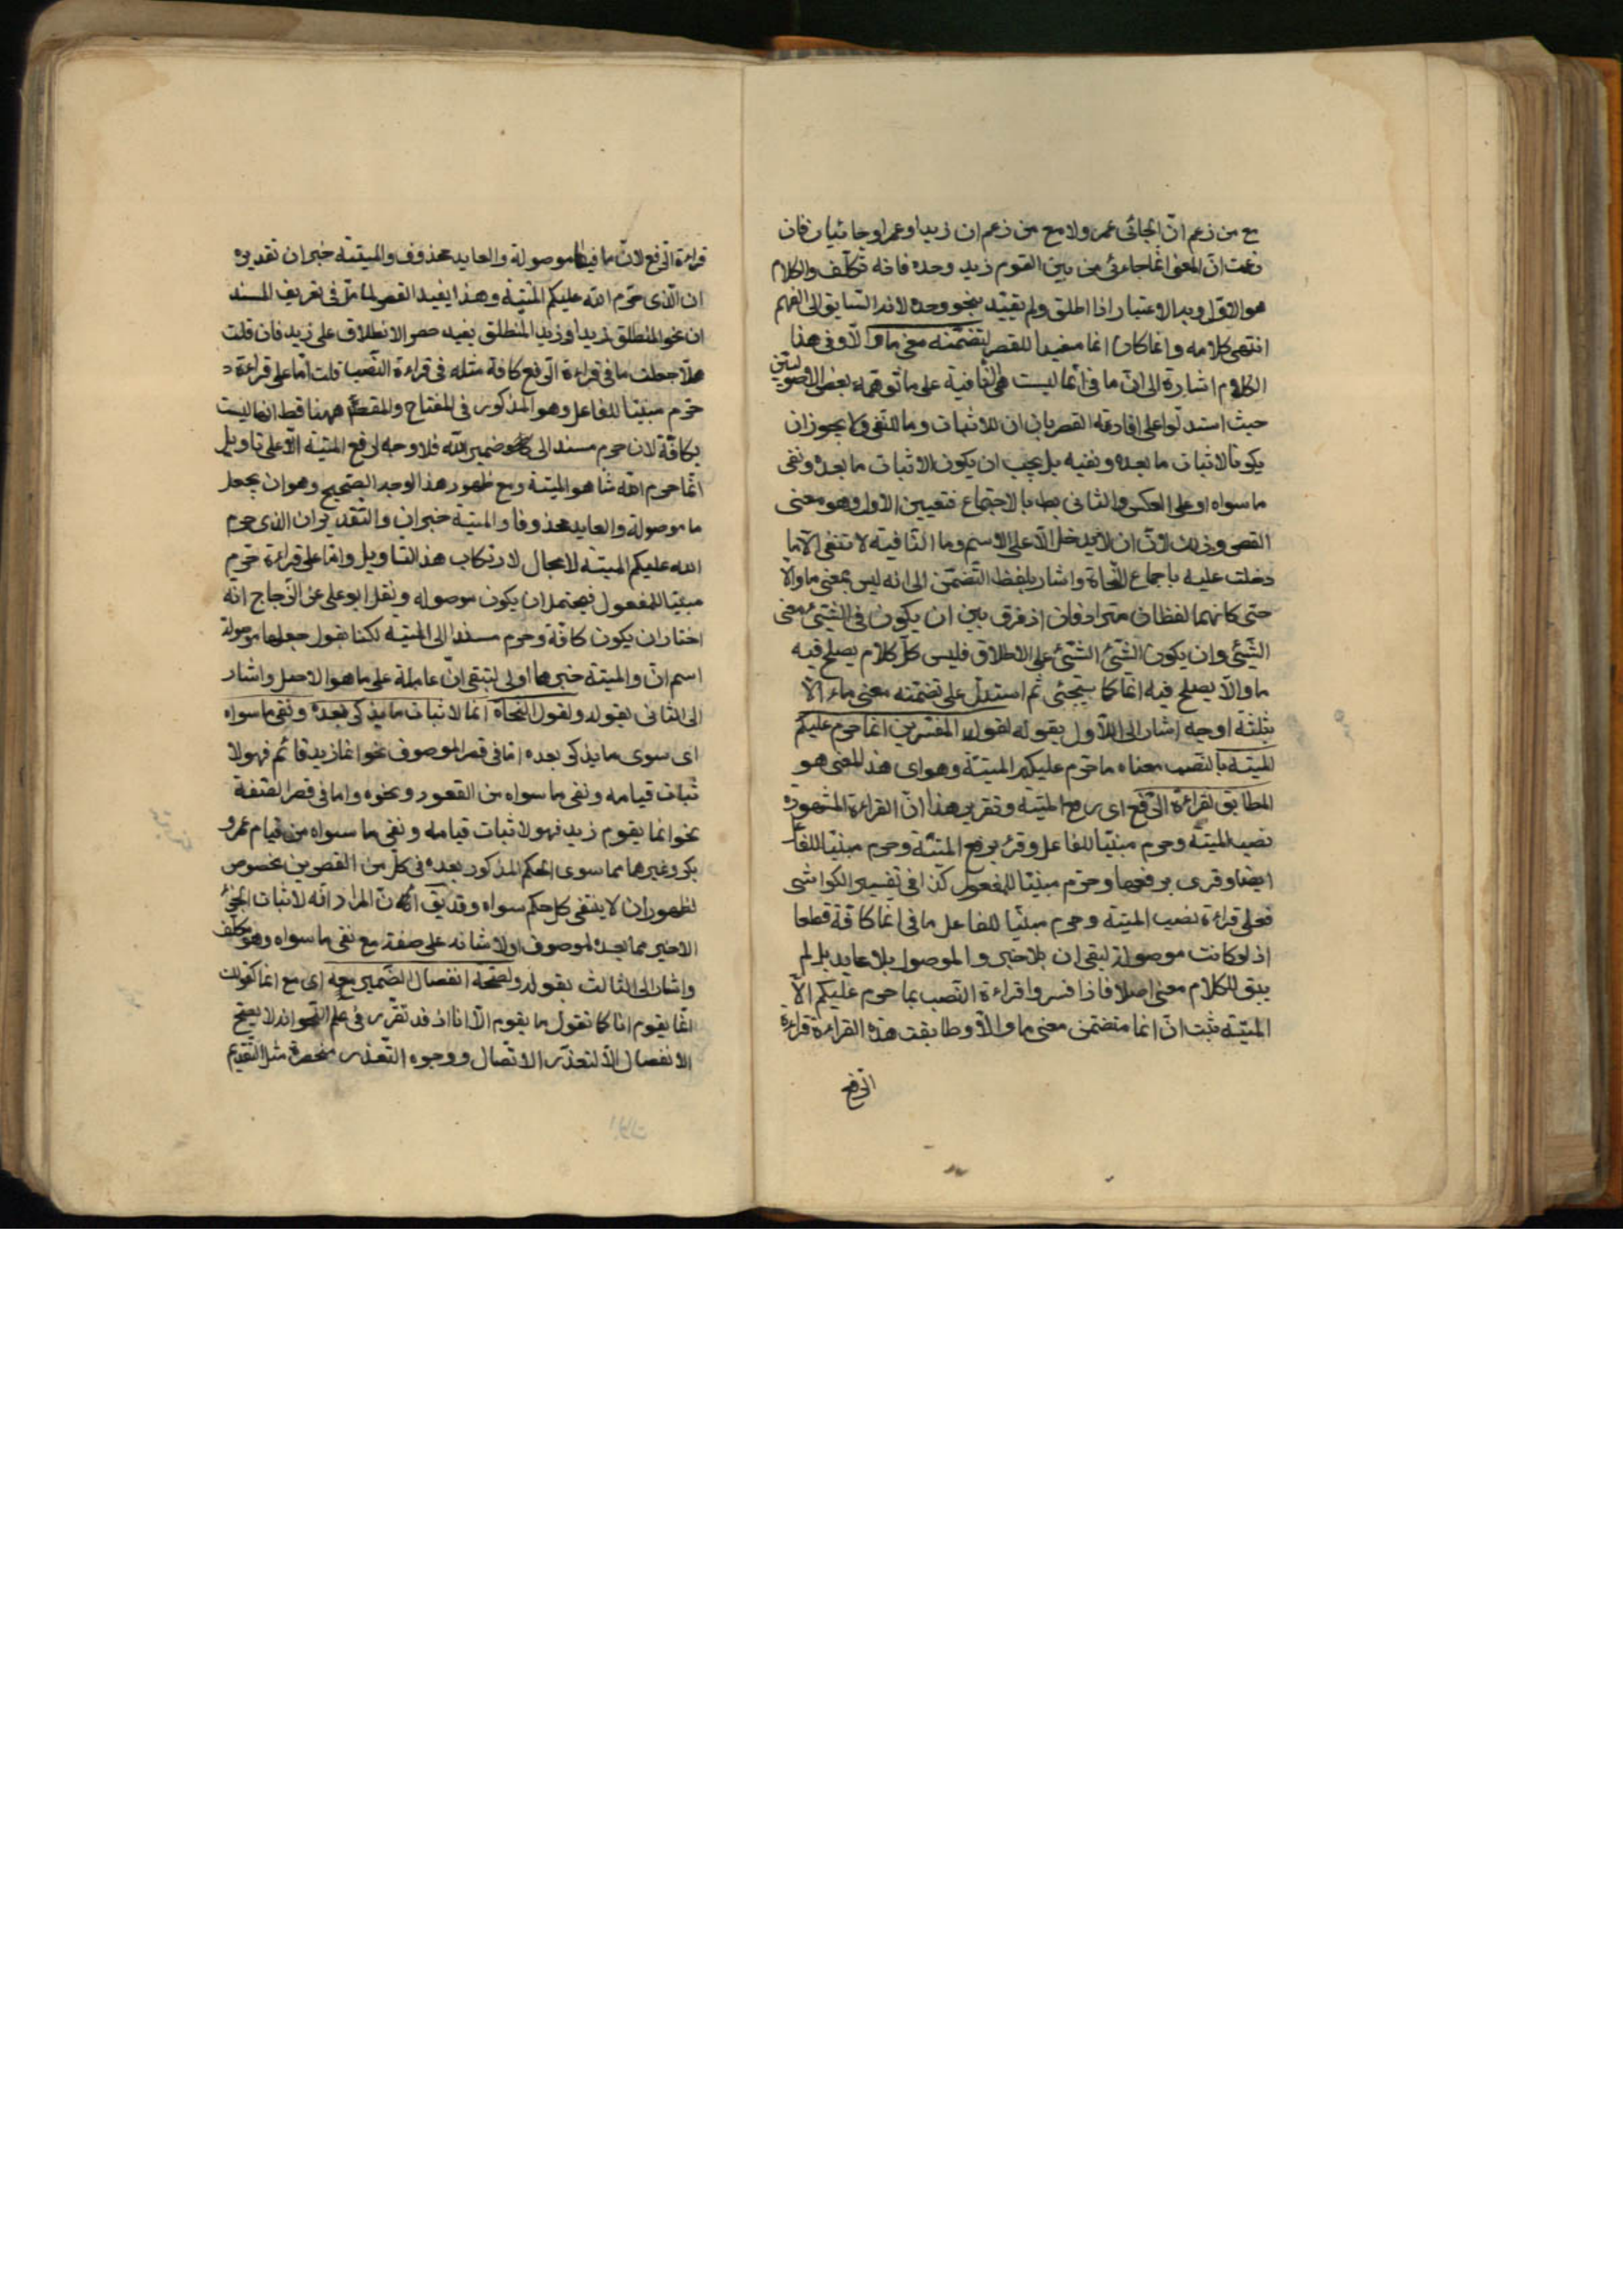 مع من زعم انّ الجائى عمرو لا مع من زعم ان زيدا وعمرا و جائيان فان
زعمت انّ المعنى انما جاءنى من بين القوم زيد وحده فانه تكلّف والكلام
هو الاوّل وبه الاعتبار اذا اطلق ولم يقيّد بنحو وحده لانه السابق الى الفهم
انتهى كلامه وانما كان انما مفيدا للقصر لتضمّنه معنى ما والّا وفى هذا
الكلام اشارة الى انّ ما فى انّما ليست هى النّافية على ما توهّمه بعض الاصوليّين
حيث استدلّوا على افادته القصر بان ان للاثبات وما للنّفى ولا يجوز ان
يكونا لاثبات ما بعده ونفيه بل يجب ان يكون الاثبات ما بعده ونفى
ما سواه او على العكس والثانى بط بالاجماع فتعيين الاول وهو معنى
القصر وذلك لانّ ان لا يدخل الّا على الاسم وما النّافية لا تنفى الّا ما
دخلت عليه باجماع النّحاة واشار بلفظ التّضمّن الى انه ليس بمعنى ما والّا
حتى كانهما لفظان مترادفان اذ فرق بين ان يكون فى الشّيئ معنى
الشّيئ وان يكون الشّيئ الشّيئ على الاطلاق فليس كلّ كلام يصلح فيه
ما والّا يصلح فيه انّما كما سيجئى ثم استدلّ على تضمّنه معنى ما والّا
بثلثة اوجه اشار الى الاّول بقوله لقول المفسّرين انما حرم عليكم
الميتة بالنّصب معناه ما حرّم عليكم الّا الميتة وهو اى هذا المعنى هو
المطابق لقراءة الرّفع اى رفع الميتة وتقرير هذا انّ القراءة المشهورة
نصب الميتة وحرم مبنيّا للفاعل وقرئ برفع الميتة وحرم مبنيّا للفاعل
ايضا وقرى برفعها وحرّم مبنيّا للمفعول كذا فى تفسير الكواشى
فعلى قراءة نصب الميتة وحرم مبنيّا للفاعل ما فى انما كافّة قطعا
اذ لو كانت موصولة لبقى ان بلا خبر والموصول بلا عايد بل لم
يبق للكلام معنى اصلا فاذا فسروا قراءة النّصب بما حرم عليكم الّا
الميّتة ثبت انّ انما متضمّن معنى ما والّا وطابقت هذه القراءة قراءة
الرّفع
قراءة الرّفع لانّ ما فيها موصولة والعايد محذوف والميتة خبر ان تقديره
ان الّذى حرّم الله عليكم الميّتة وهذا يفيد القصر لما مرّ فى تعريف المسند
ان نحو المنطلق زيد او زيد المنطلق يفيد حصر الانطلاق على زيد فان قلت
هلّا جعلت ما فى قراءة الرّفع كافة مثله فى قراءة النّصب قلت امّا على قراءة
حرّم مبنيّا للفاعل وهو المذكور فى المفتاح والمقصّ ههنا فظ انها ليست
بكافّة لان حرم مسند الى ضمير الله فلا وجه لرفع الميتة الّا على تاويل
انّما حرم الله شا هو الميتة ومع ظهور هذا الوجه الصّحيح وهو ان يجعل
ما موصولة والعايد محذوفا والميتة خبر ان والتّقدير ان الذى حرم
الله عليكم الميتة لا مجال لارتكاب هذا التاويل وامّا على قراءة حرّم
مبنيّا للمفعول فيحتمل ان يكون موصوله ونقل ابو على عن الزّجاج انّه
اختار ان يكون كافّة وحرم مسندا الى الميّتة لكنا نقول جعلها موصولة
اسم انّ والميتة خبرها اولى لتبقى انّ عاملة على ما هو الاصل واشار
الى الثانى بقوله ولقول النّحاة انما لاثبات ما يذكر بعده ونفى ما سواه
اى سوى ما يذكر بعده امّا فى قصر الموصوف نحو انما زيد قائم فهو لا
ثبات قيامه ونفى ما سواه من القعود ونحوه واما فى قصر الصّفة
نحو انما يقوم زيد فهو لاثبات قيامه ونفى ما سواه من قيام عمرو
بكر وغيرهما مما سوى الحكم المذكور بعده فى كل من القصرين بخصوص
لظهور ان لا ينتفى كل حكم سواه وقد يق المراد انّه لاثبات الجزء
الاخير مما بعده لموصوف او لاثباته على صفة مع نفى ما سواه وهو تكلّف
واشار الى الثالث بقوله ولصحّة انفصال الضّمير معه اى مع انما كقولك
انّما يقوم انا كما تقول ما يقوم الّا انا اذ قد تقرّر فى علم النّحو انه لا يصحّ
الانفصال الّا لتعذّر الاتّصال ووجوه التّعذر منحصرة مثل التّقديم